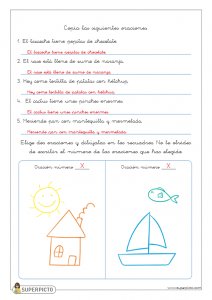 Copia las siguientes oraciones
1. El bizcocho tiene pepitas de chocolate.
El bizcocho tiene pepitas de chocolate
2. El vaso está lleno de zumo de naranja.
El vaso está lleno de zumo de naranja
3. Hay cena tortilla de patatas con kétchup.
Hay cena tortilla de patatas con kétchup
4. El cactus tiene unos pinchos enormes.
El cactus tiene unos pinchos enormes
5. Merienda pan con mantequilla y mermelada.
Merienda pan con mantequilla y mermelada
Elige dos oraciones y dibújalas en los recuadros. No te olvides
de escribir el número de las oraciones que has elegido.
Oración número X
Oración número X
SUPERPICTO
www.superpicto.com